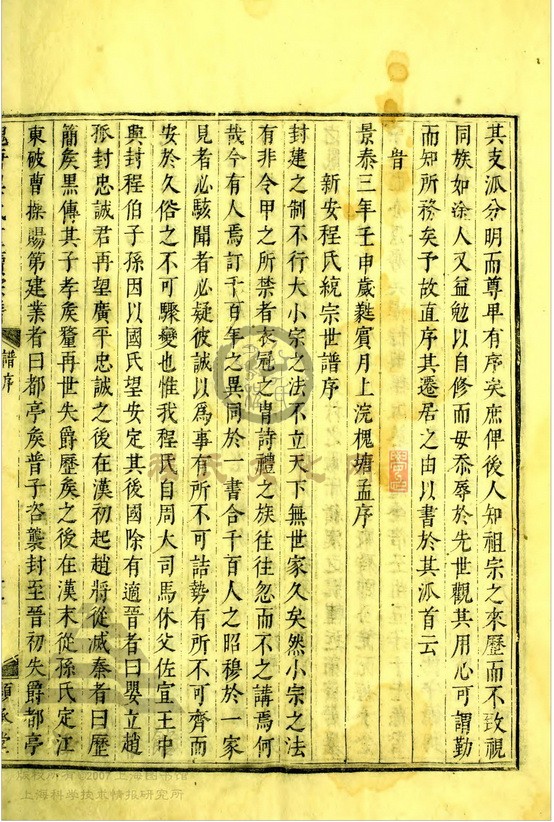 其支派分明而尊卑有序矣庶俾後人知祖宗之來歷而不致視
同族如塗人又益勉以自修而毋忝辱於先世觀其用心可謂勤
而知所務矣予故直序其遷居之由以書於其派首云
旹
景泰三年壬申歲蕤賓月上浣槐塘孟序
新安程氏統宗世譜序
封建之制不行大小宗之法不立天下無世家久矣然小宗之法
有非令甲之所禁者衣冠之胄詩禮之族往往忽而不之講焉何
哉今有人焉訂千百年之異同於一書合千百人之昭穆於一家
見者必駭聞者必疑彼誠以爲事有所不可詰勢有所不可齊而
安於久俗之不可驟變也惟我程氏自周大司馬休父佐宣王中
興封程伯子孫因以國氏望安定其後國除有適晉者曰嬰立趙
孤封忠誠君再望廣平忠誠之後在漢初起趙將從滅秦者曰歷
簡矦黒傳其子孝矦釐再世失爵歷矦之後在漢末從孫氏定江
東破曹操賜第建業者曰都亭矦普子咨襲封至晉初失爵都亭
譜序
版权所有©2007上海图书馆
上海科学技术情报研究所